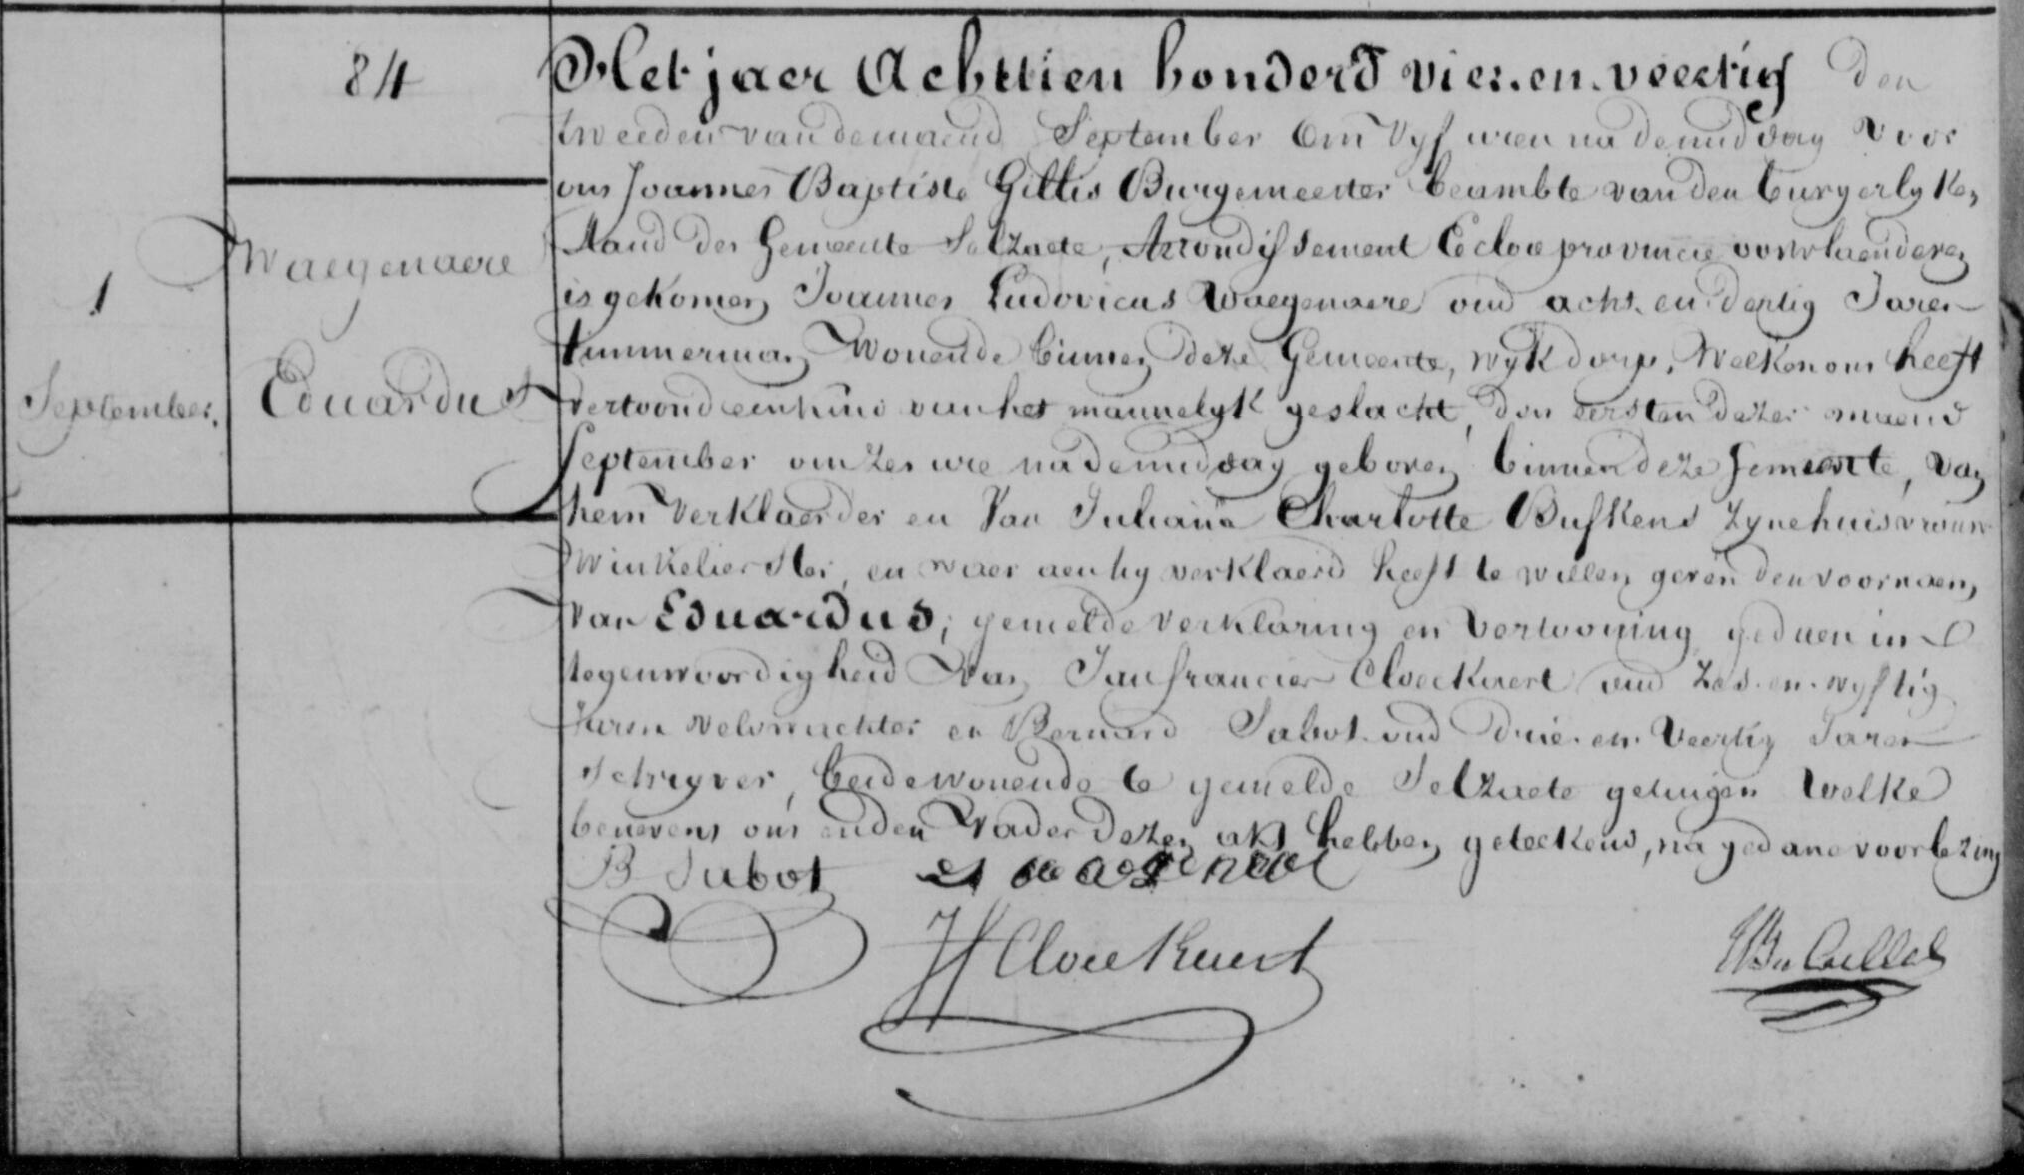 84
1
September.
Waegenaere
Eduardus
Het jaer Achttien honderd vier.en.veertig den
tweeden van de maend September Om Vyf uren na de middag voor
ons Joannes Baptiste Gillis Burgemeester beambte van den burgerlyken
stand der Gemeente Selzaete, Arrondissement Eecloo provincie oostvlaenderen
is gekomen Joannes Ludovicus Waegenaere oud acht.en dertig Jaren
timmerman Wonende binnen deze Gemeente, wyk dorp, Welken ons heeft
vertoond een kind van het mannelyk geslacht, den eersten dezer maend
September om zes ure na de middag geboren binnen deze Gemeente, van
hem Verklaerder en Van Juliana Charlotte Buskens zyne huisvrouw
Winkelierster, en waer aen hy verklaerd heeft te willen geven den voornaem
van Eduardus, gemelde verklaring en Vertooning gedaen in
tegenwoordigheid Van Jan francies Cloeckaert oud zes.en.vyftig
Jaren veldwachter en Bernard Sabot oud drie.en.Veertig Jaren
schryver, beide wonende te gemelde Selzaete getuigen Welke
benevens ons en den Vader dezen akt hebben geteekend, na gedane voorlezing
B Sabot waegenaere
JF Cloeckaert